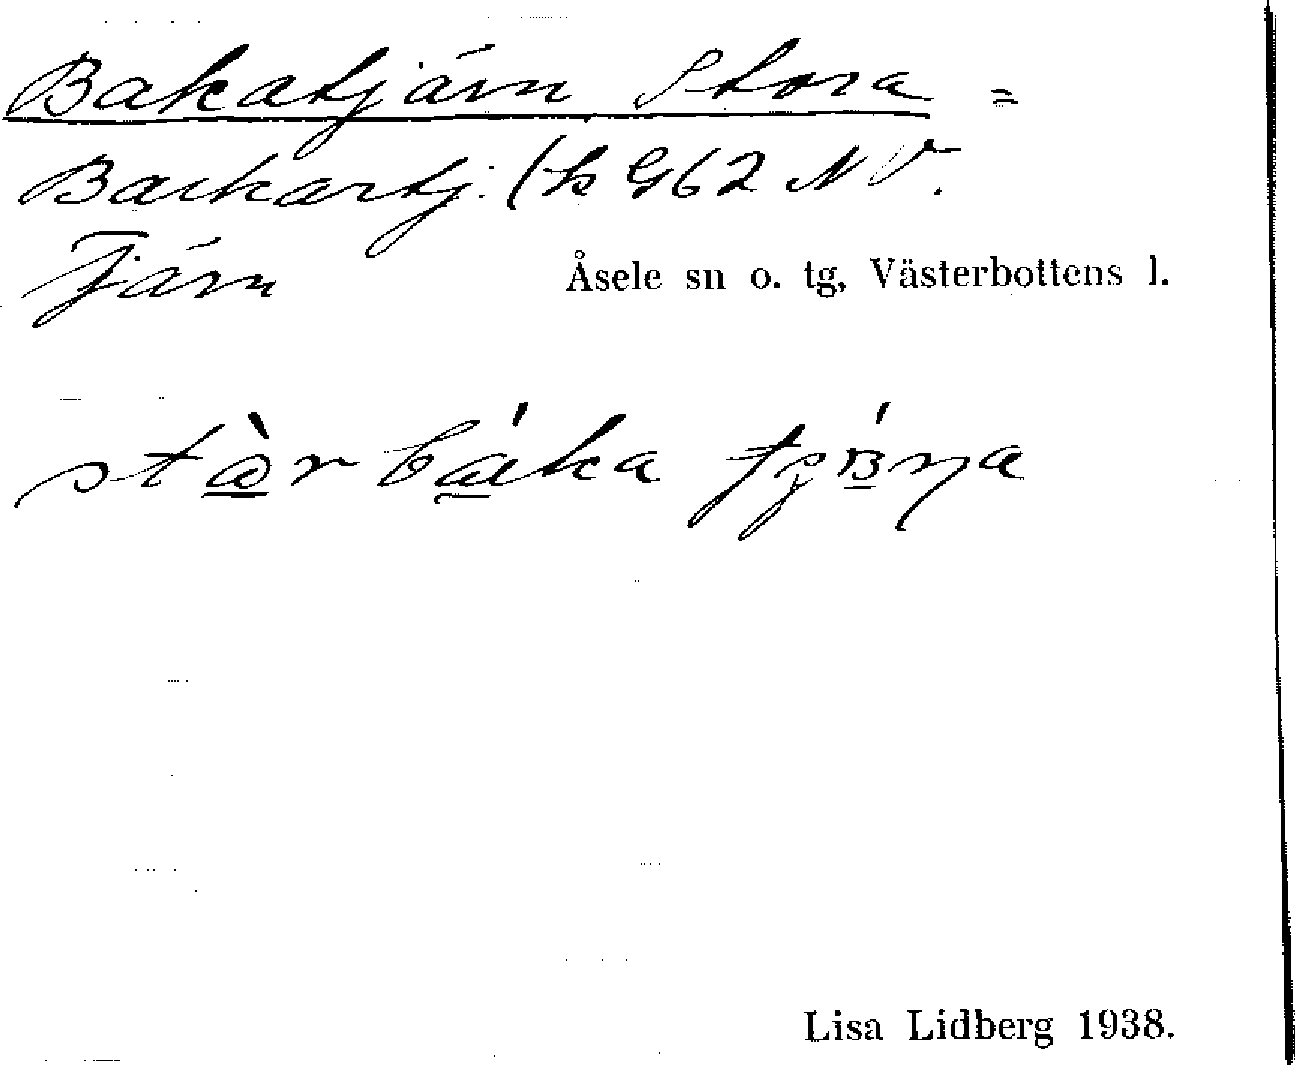 Bakatjärn Stora =
Backartj. (k G62 NV.
Tjärn
Åsele sn o. tg, Västerbottens l.
Lisa Lidberg 1938.